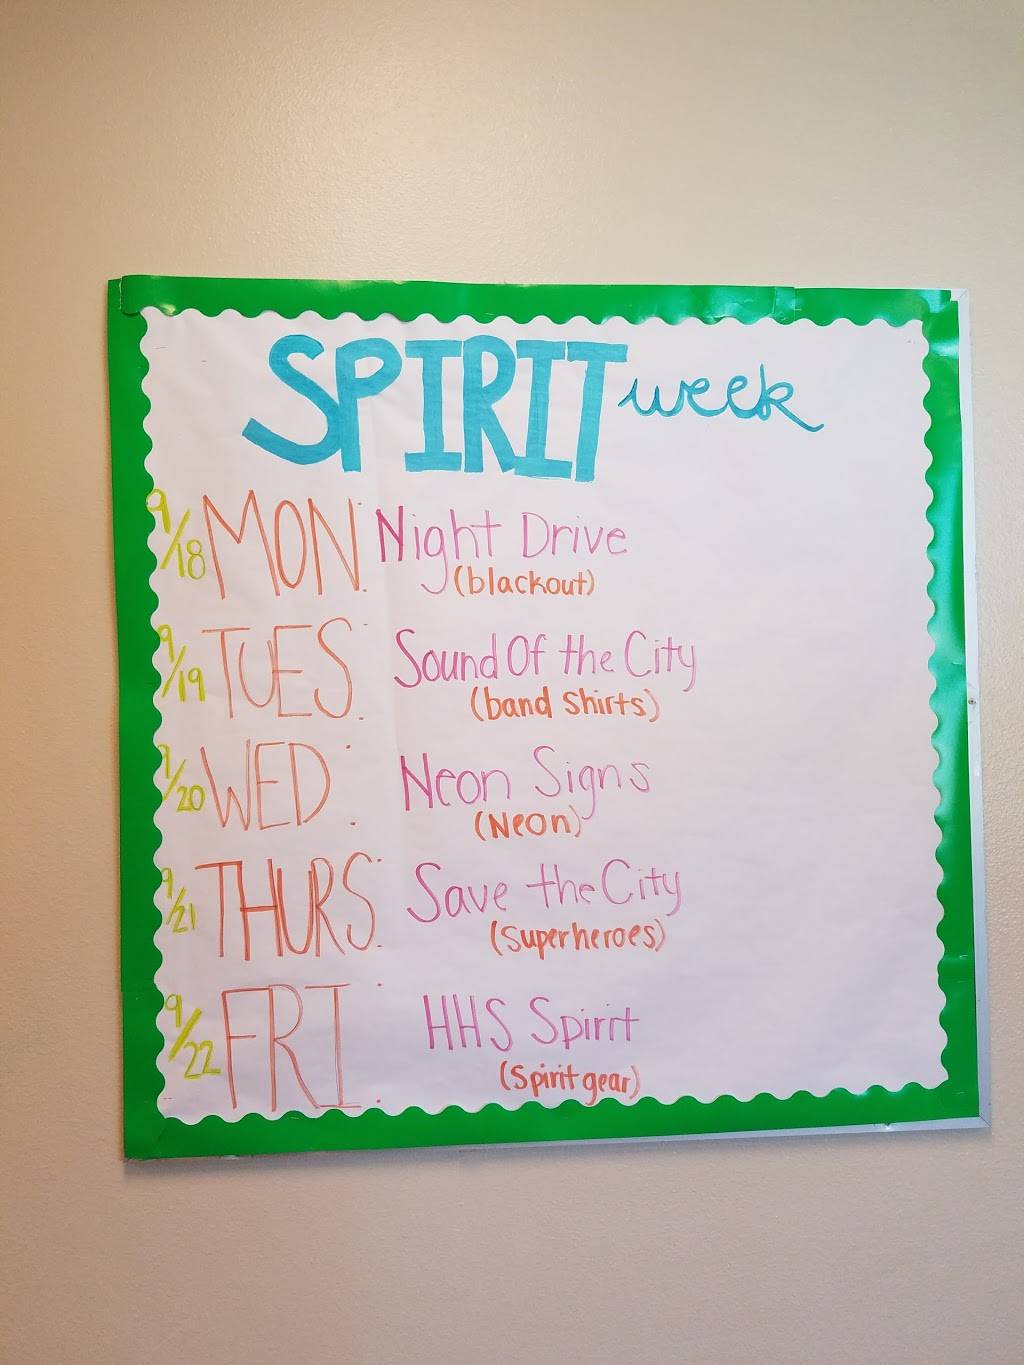 SPIRIT week
9/18 MON: Night Drive
(blackout)
9/19 TUES: Sound Of the City
(band Shirts)
9/20 WED: Neon Signs
(Neon)
9/21 THURS: Save the City
(Superheroes)
9/22 FRI: HHS Spirit
(Spirit gear)